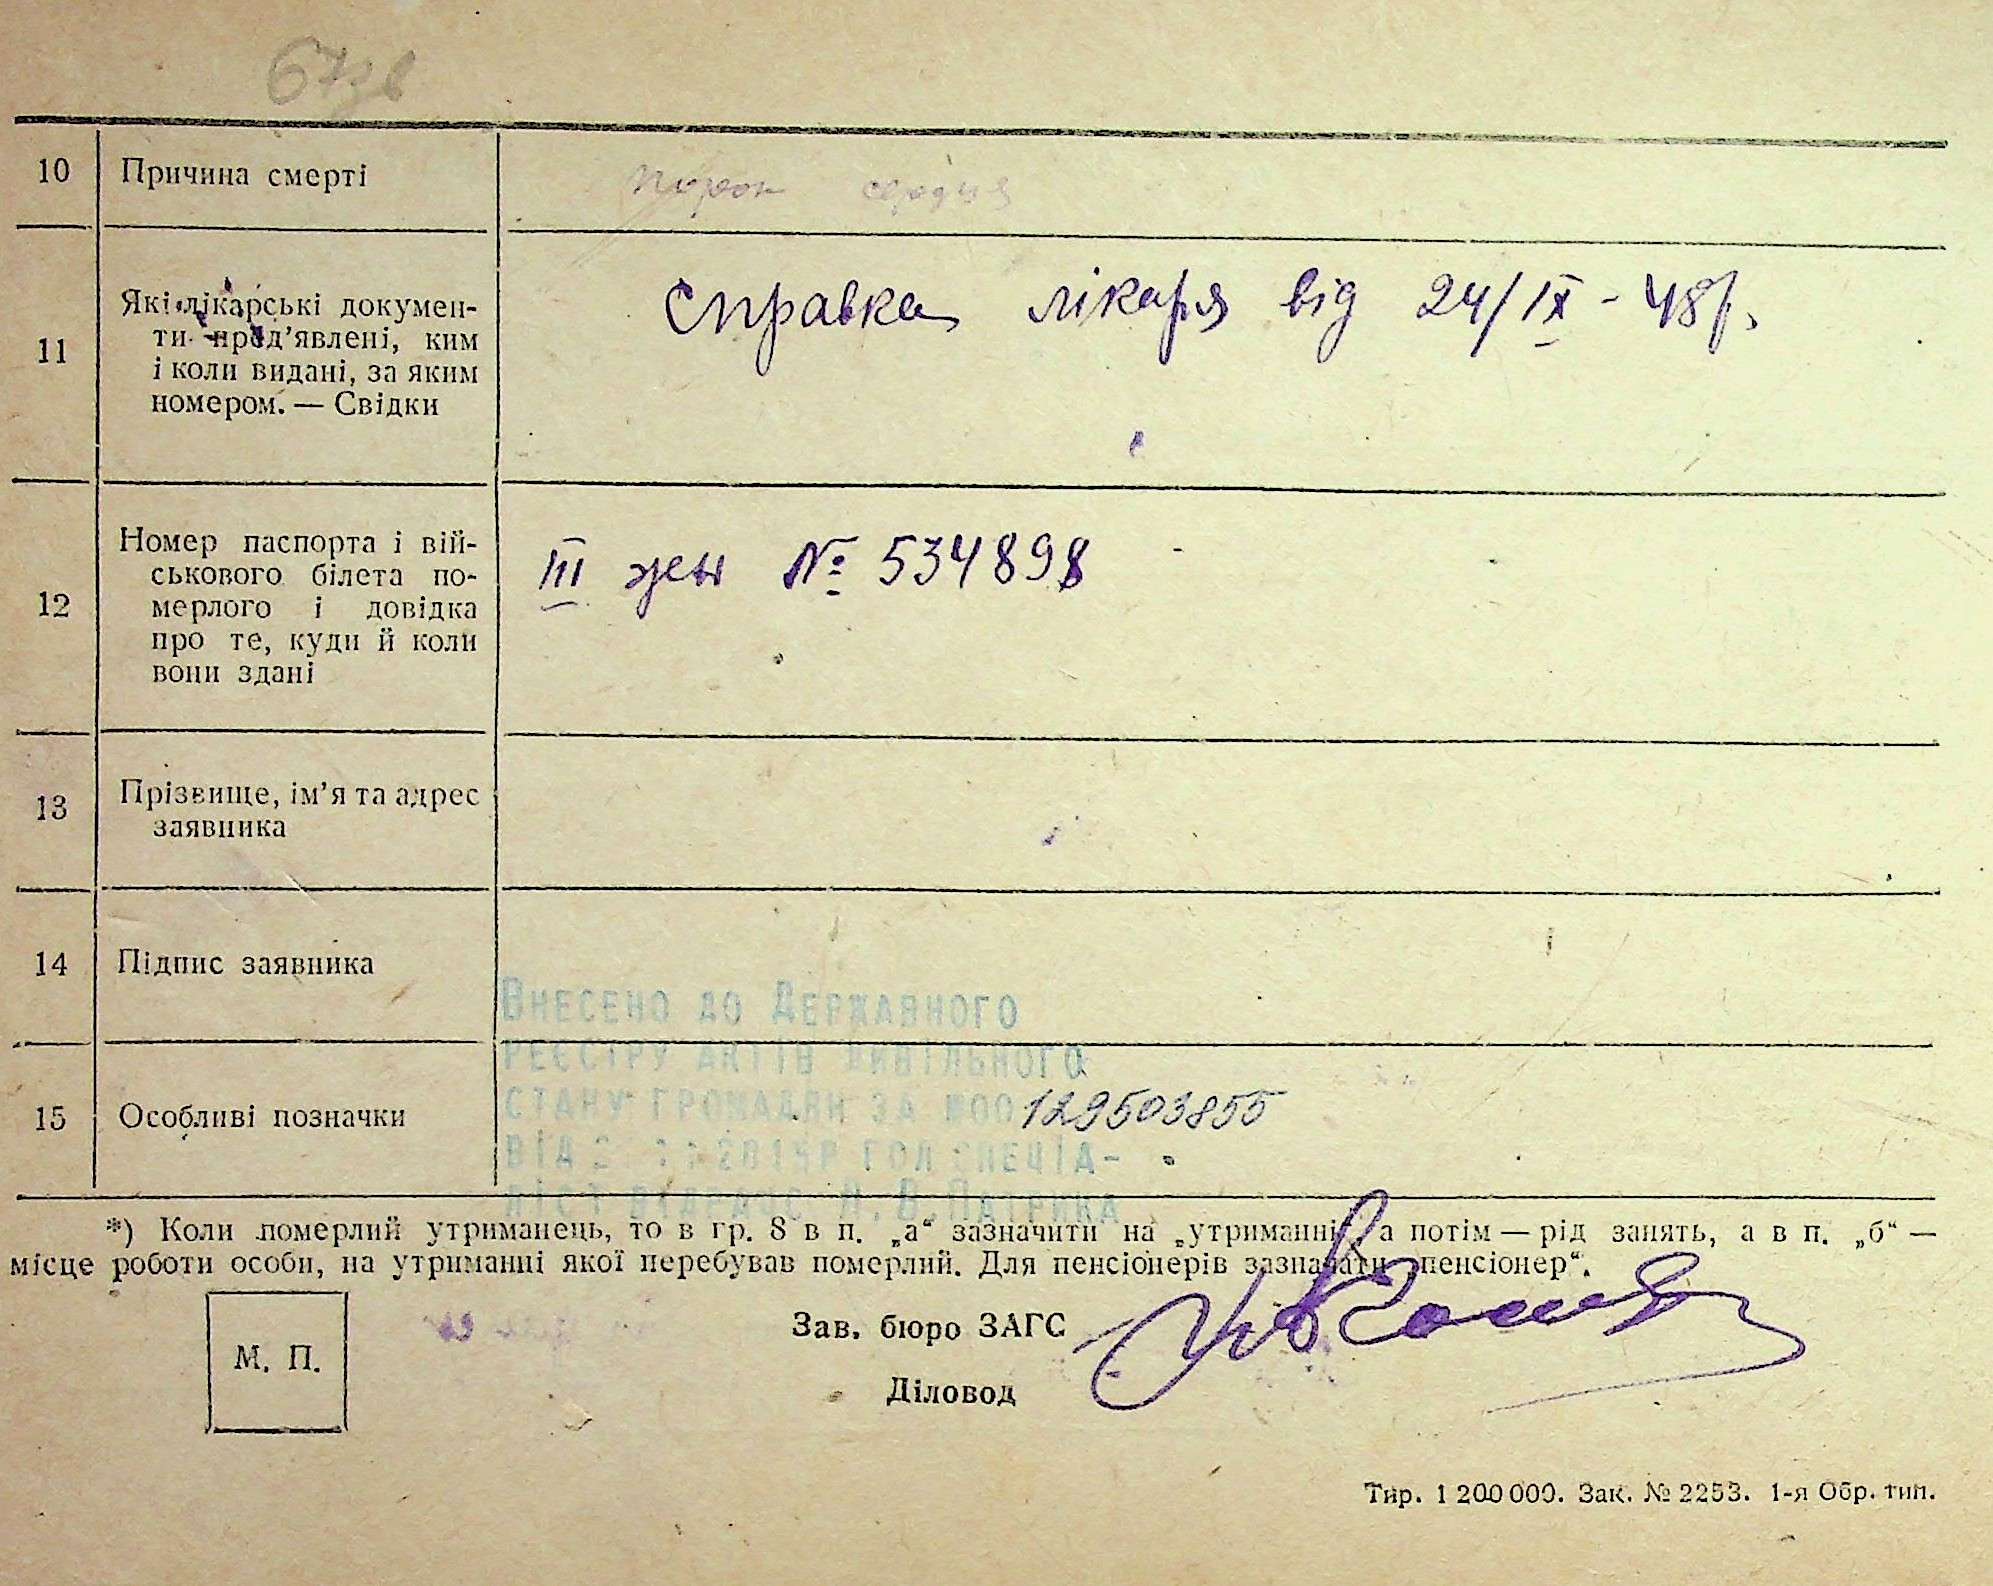 10 Причина смерті Порок сердця
11 Які лікарські докумен-
ти пред’явлені, ким
і коли видані, за яким
номером. — Свідки
Справка лікаря від 24/IX - 48р.
12 Номер паспорта і вій-
ськового білета по-
мерлого і довідка
про те, куди й коли
вони здані
III жен № 534898
13 Прізвище, ім’я та адрес
заявника
14 Підпис заявника
Внесено до Державного
реєстру актів цивільного
15 Особливі позначки
стану громадян за №00129503855
від 2015р гол спеціа-
ліст В. Патрика
*) Коли померлий утриманець, то в гр. 8 в п. „а“ зазначити на „утриманні а потім — рід занять, а в п. „б“ —
місце роботи особи, на утриманні якої перебував померлий. Для пенсіонерів зазначати „пенсіонер“.
М. П.
Зав. бюро ЗАГС
Діловод
Тир. 1 200 000. Зак. № 2253. 1-я Обр. тип.